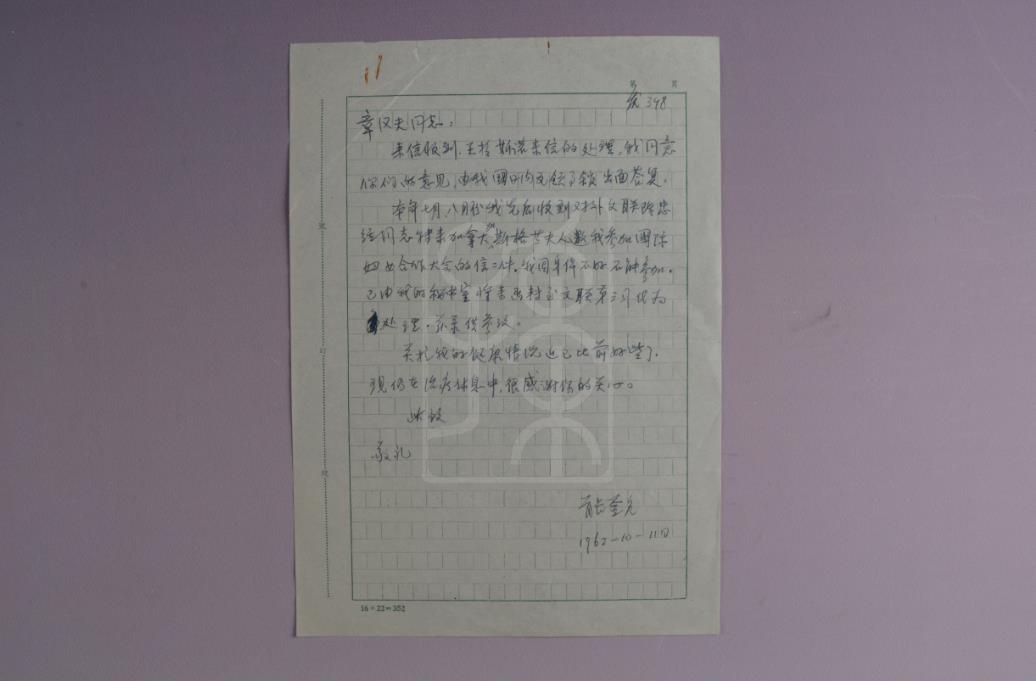 第 页
发398
章汉夫同志：
来信收到。关于斯诺来信的处理，我同意
你们的意见，由我国驻内瓦领事馆出面答复。
本年七月、八月份我先后收到对外文联陈忠
经同志转来加拿大斯格芝夫人邀我参加国际
妇女合作大会的信二件。我因身体不好不能参加。
已由我的秘书室将来函转至文联第三司代为
处理。并录供参攷。
关于我的健康情况近已比前好些了，
现仍在治疗休息中，很感谢你的关心。
此致
敬礼
1962-10-11日
装
订
线
16×22=352